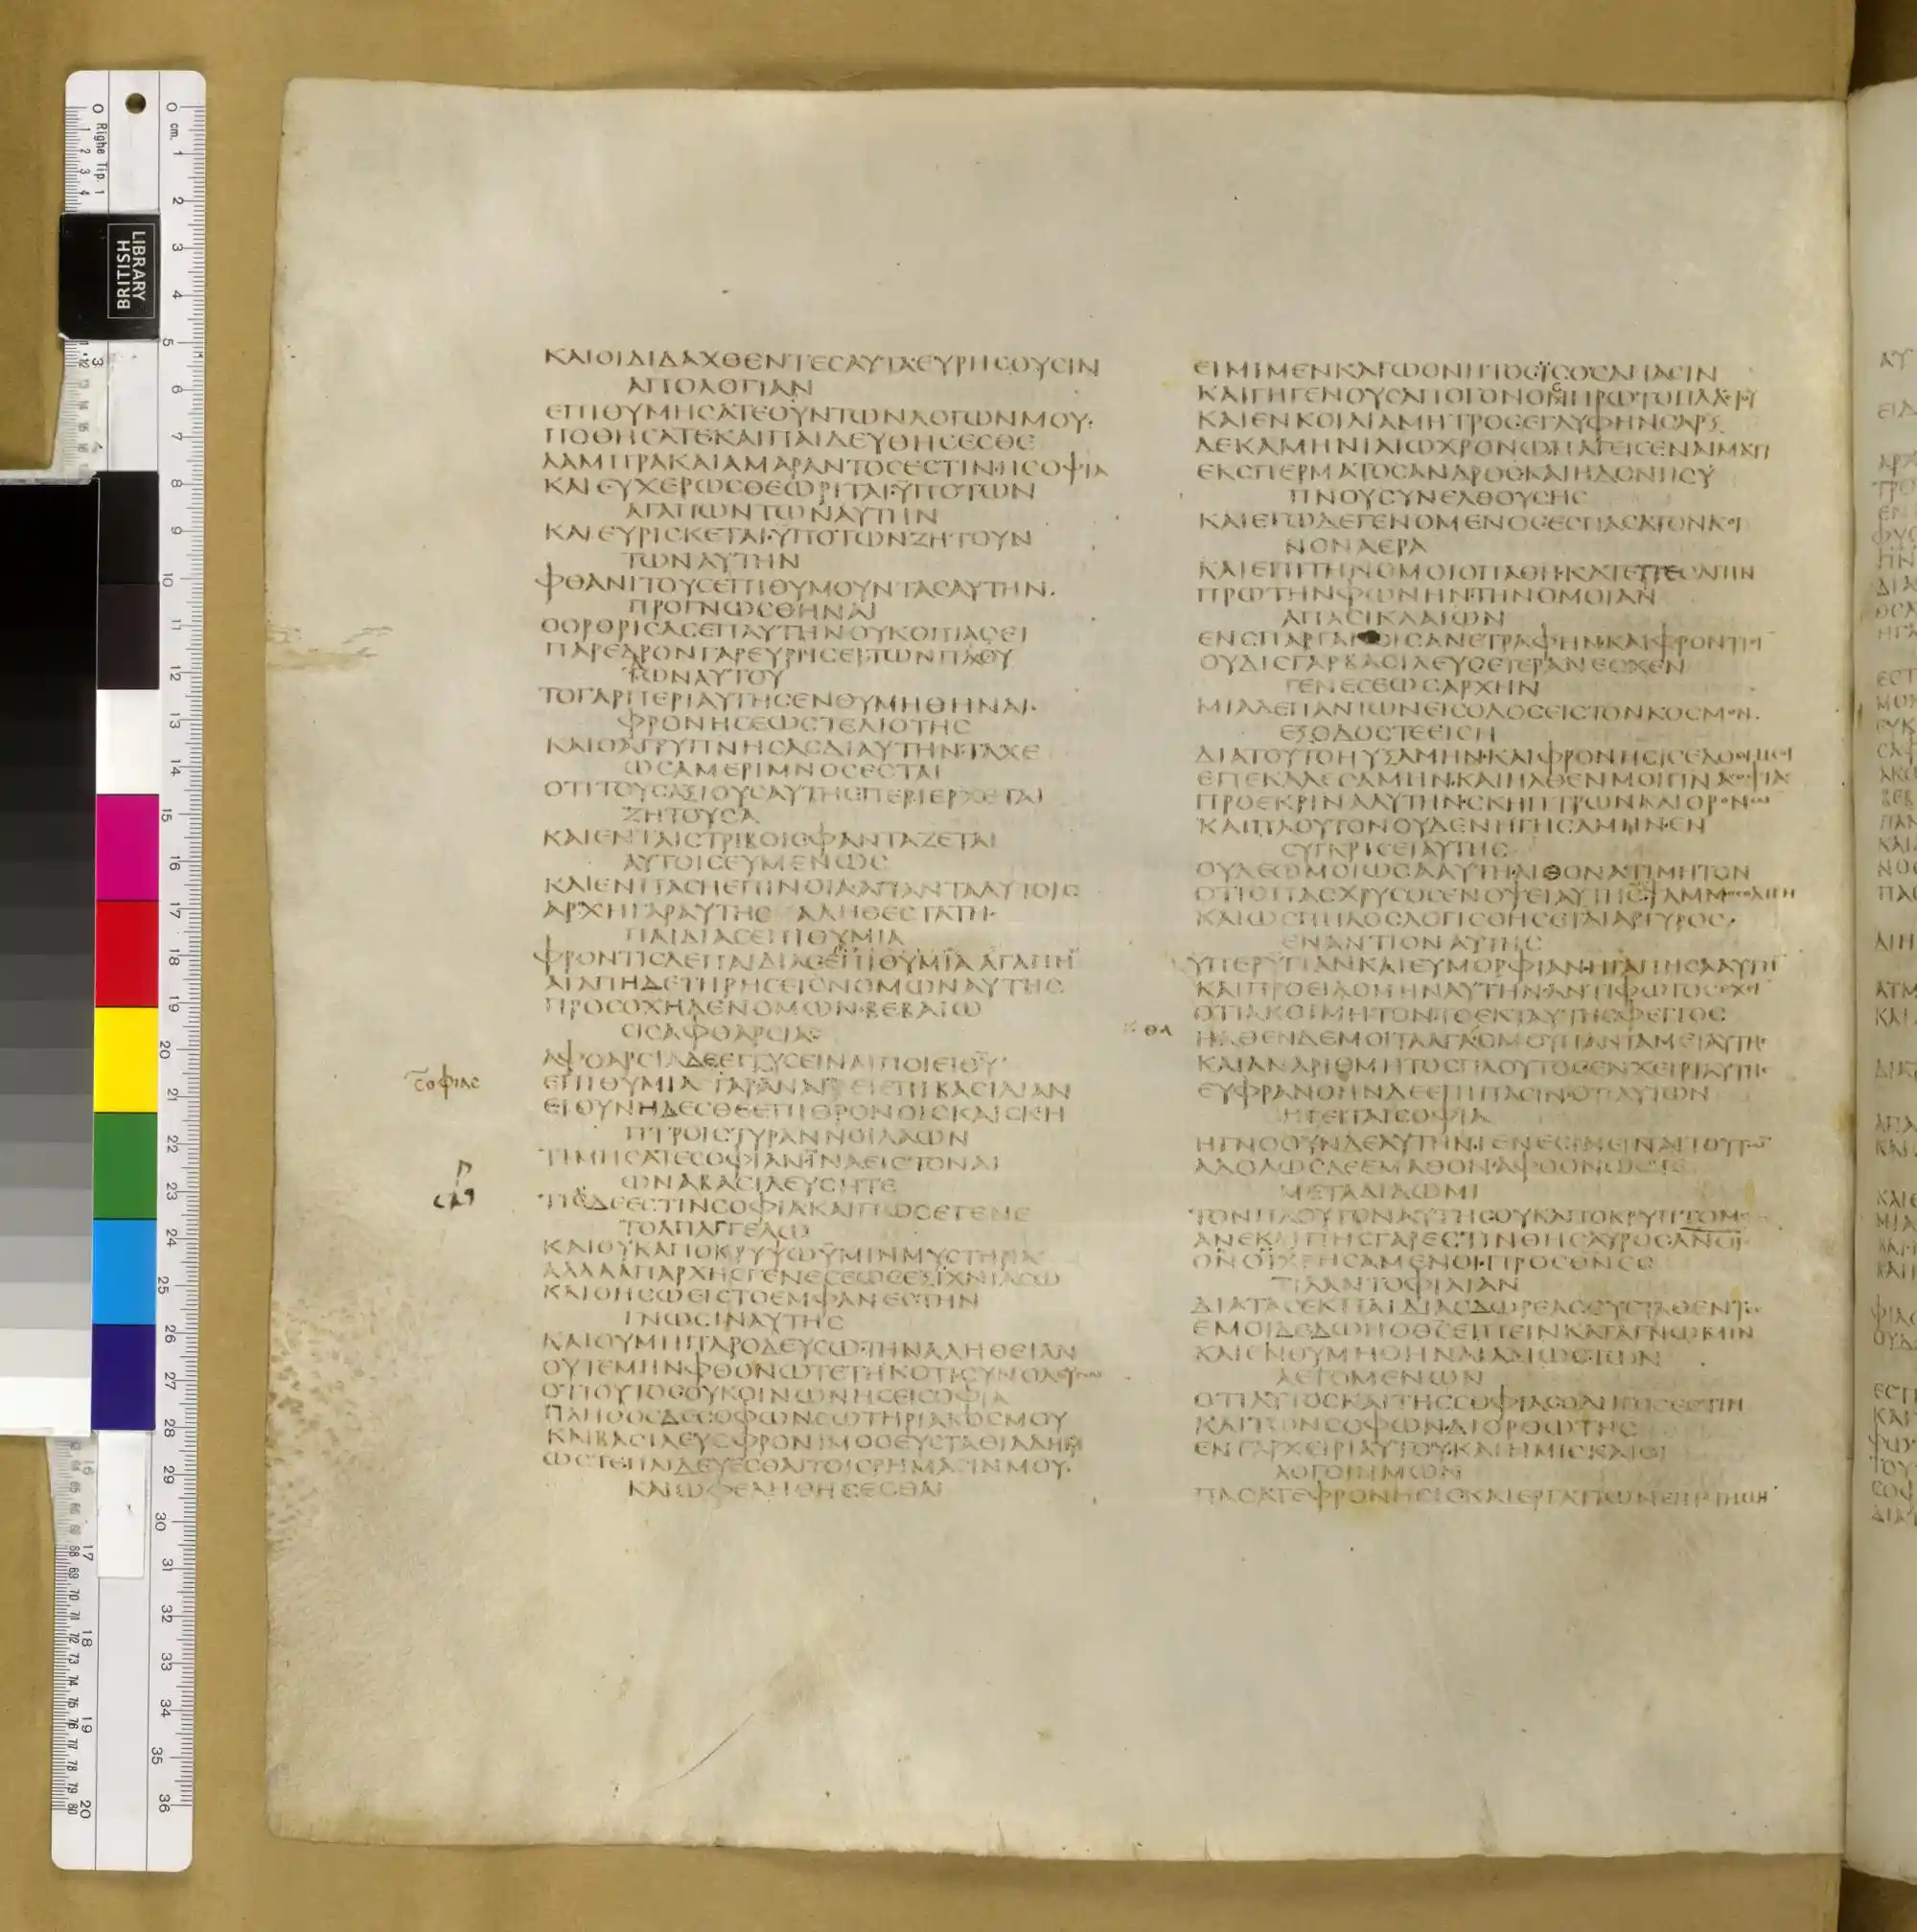 ΚΑΙΟΙΔΙΔΑΧΘΕΝΤΕΣΑΥΤΑΕΥΡΗΣΟΥΣΙΝ
ΑΠΟΛΟΓΙΑΝ
ΕΠΙΘΥΜΗΣΑΤΕΟΥΝΤΩΝΛΟΓΩΝΜΟΥ·
ΠΟΘΗΣΑΤΕΚΑΙΠΑΙΔΕΥΘΗΣΕΣΘΕ
ΛΑΜΠΡΑΚΑΙΑΜΑΡΑΝΤΟΣΕΣΤΙΝ·ΗΣΟΦΙΑ
ΚΑΙΕΥΧΕΡΩΣΘΕΩΡΙΤΑΙ·ΫΠΟΤΩΝ
ΑΓΑΠΩΝΤΩΝΑΥΤΗΝ
ΚΑΙΕΥΡΙΣΚΕΤΑΙ·ΫΠΟΤΩΝΖΗΤΟΥΝ
ΤΩΝΑΥΤΗΝ
ΦΘΑΝΙΤΟΥΣΕΠΙΘΥΜΟΥΝΤΑΣΑΥΤΗΝ·
ΠΡΟΓΝΩΣΘΗΝΑΙ
ΟΟΡΘΡΙΣΑΣΕΠΑΥΤΗΝΟΥΚΟΠΙΑΣΕΙ
ΠΑΡΕΔΡΟΝΓΑΡΕΥΡΗΣΕΙ·ΤΩΝΠΥΛΩΝΑΥΤΟΥ
ΤΟΓΑΡΠΕΡΙΑΥΤΗΣΕΝΘΥΜΗΘΗΝΑΙ·
ΦΡΟΝΗΣΕΩΣΤΕΛΙΟΤΗΣ
ΚΑΙΟΑΓΡΥΠΝΗΣΑΣΔΙΑΥΤΗΝ·ΤΑΧΕ
ΩΣΑΜΕΡΙΜΝΟΣΕΣΤΑΙ
ΟΤΙΤΟΥΣΑΞΙΟΥΣΑΥΤΗΣΠΕΡΙΕΡΧΕΤΑΙ
ΖΗΤΟΥΣΑ
ΚΑΙΕΝΤΑΙΣΤΡΙΒΟΙΣΦΑΝΤΑΖΕΤΑΙ
ΑΥΤΟΙΣΕΥΜΕΝΩΣ
ΚΑΙΕΝΠΑΣΗΕΠΙΝΟΙΑΑΠΑΝΤΑΑΥΤΟΙΣ
ΑΡΧΗΓΑΡΑΥΤΗΣ ΑΛΗΘΕΣΤΑΤΗ·
ΠΑΙΔΙΑΣΕΠΙΘΥΜΙΑ
ΦΡΟΝΤΙΣΔΕΠΑΙΔΙΑΣΕΠΙΘΥΜΙΑΑΓΑΠΗ
ΑΓΑΠΗΔΕΤΗΡΗΣΕΙΣΝΟΜΩΝΑΥΤΗΣ
ΠΡΟΣΟΧΗΔΕΝΟΜΩΝ·ΒΕΒΑΙΩ
ΣΙΣΑΦΘΑΡΣΙΑΣ
ΑΦΘΑΡΣΙΑΔΕΕΓΓΥΣΕΙΝΑΙΠΟΙΕΙΘΥ
ΕΠΙΘΥΜΙΑΓΑΡΑΝΑΓΕΙΕΠΙΒΑΣΙΛΙΑΝ
ΕΙΟΥΝΗΔΕΣΘΕΕΠΙΘΡΟΝΟΙΣΚΑΙΣΚΗ
ΠΤΡΟΙΣΤΥΡΑΝΝΟΙΛΑΩΝ
ΤΙΜΗΣΑΤΕΣΟΦΙΑΝΪΝΑΕΙΣΤΟΝΑΙ
ΩΝΑΒΑΣΙΛΕΥΣΗΤΕ
ΤΙΔΕΕΣΤΙΝΣΟΦΙΑΚΑΙΠΩΣΕΓΕΝΕ
ΤΟΑΠΑΓΓΕΛΩ
ΚΑΙΟΥΚΑΠΟΚΡΥΨΩΫΜΙΝΜΥΣΤΗΡΙΑ
ΑΛΛΑΑΠΑΡΧΗΣΓΕΝΕΣΕΩΣΕΞΙΧΝΙΑΣΩ
ΚΑΙΘΗΣΩΕΙΣΤΟΕΜΦΑΝΕΣΤΗΝ
ΓΝΩΣΙΝΑΥΤΗΣ
ΚΑΙΟΥΜΗΠΑΡΟΔΕΥΣΩ·ΤΗΝΑΛΗΘΕΙΑΝ
ΟΥΤΕΜΗΝ·ΦΘΟΝΩΤΕΤΗΚΟΤΙΣΥΝΟΔΕΥΣΩ
ΟΤΙΟΥΤΟΣΟΥΚΟΙΝΩΝΗΣΕΙΣΟΦΙΑ
ΠΛΗΘΟΣΔΕΣΟΦΩΝΣΩΤΗΡΙΑΚΟΣΜΟΥ
ΚΑΙΒΑΣΙΛΕΥΣΦΡΟΝΙΜΟΣΕΥΣΤΑΘΙΑΔΗΜ
ΩΣΤΕΠΑΙΔΕΥΕΣΘΑΙΤΟΙΣΡΗΜΑΣΙΝΜΟΥ·
ΚΑΙΩΦΕΛΗΘΗΣΕΣΘΑΙ
ΣΟΦΙΑΣ
ΕΙΜΙΜΕΝΚΑΓΩΘΝΗΤΟΣΪΣΟΣΑΠΑΣΙΝ
ΚΑΙΓΗΓΕΝΟΥΣΑΠΟΓΟΝΟΣΠΡΩΤΟΠΛΑΣΤΟΥ
ΚΑΙΕΝΚΟΙΛΙΑΜΗΤΡΟΣΕΓΛΥΦΗΝΣΑΡΞ
ΔΕΚΑΜΗΝΙΑΙΩΧΡΟΝΩΠΑΓΕΙΣΕΝΑΙΜΑΤΙ
ΕΚΣΠΕΡΜΑΤΟΣΑΝΔΡΟΣΚΑΙΗΔΟΝΗΣΥ
ΠΝΟΥΣΥΝΕΛΘΟΥΣΗΣ
ΚΑΙΕΓΩΔΕΓΕΝΟΜΕΝΟΣΕΣΠΑΣΑΤΟΝΚΟΙ
ΝΟΝΑΕΡΑ
ΚΑΙΕΠΙΤΗΝΟΜΟΙΟΠΑΘΗ·ΚΑΤΕΠΕΣΑΓΗΝ
ΠΡΩΤΗΝΦΩΝΗΝΤΗΝΟΜΟΙΑΝ
ΑΠΑΣΙΚΛΑΙΩΝ
ΕΝΣΠΑΡΓΑΝΟΙΣΑΝΕΤΡΑΦΗΝ·ΚΑΙΦΡΟΝΤΙΣΙ
ΟΥΔΙΣΓΑΡΒΑΣΙΛΕΥΣΕΤΕΡΑΝΕΣΧΕΝ
ΓΕΝΕΣΕΩΣΑΡΧΗΝ
ΜΙΑΔΕΠΑΝΤΩΝΕΙΣΟΔΟΣΕΙΣΤΟΝΚΟΣΜΟΝ·
ΕΞΟΔΟΣΤΕΕΙΣΗ
ΔΙΑΤΟΥΤΟΗΥΞΑΜΗΝ·ΚΑΙΦΡΟΝΗΣΙΣΕΔΟΘΗΜΟΙ
ΕΠΕΚΑΛΕΣΑΜΗΝ·ΚΑΙΗΛΘΕΝΜΟΙΠΝΑΣΟΦΙΑΣ
ΠΡΟΕΚΡΙΝΑΑΥΤΗΝ·ΣΚΗΠΤΡΩΝΚΑΙΘΡΟΝΩΝ
ΚΑΙΠΛΟΥΤΟΝΟΥΔΕΝΗΓΗΣΑΜΗΝ·ΕΝ
ΣΥΓΚΡΙΣΕΙΑΥΤΗΣ
ΟΥΔΕΩΜΟΙΩΣΑΑΥΤΗΛΙΘΟΝΑΤΙΜΗΤΟΝ
ΟΤΙΟΠΑΣΧΡΥΣΟΣΕΝΟΨΕΙΑΥΤΗΣΨΑΜΜΟΣΟΛΙΓΗ
ΚΑΙΩΣΠΗΛΟΣΛΟΓΙΣΘΗΣΕΤΑΙΑΡΓΥΡΟΣ·
ΕΝΑΝΤΙΟΝΑΥΤΗΣ
ΥΠΕΡΥΓΙΑΝΚΑΙΕΥΜΟΡΦΙΑΝ·ΗΓΑΠΗΣΑΑΥΤΗ
ΚΑΙΠΡΟΕΙΛΟΜΗΝΑΥΤΗΝ·ΑΝΤΙΦΩΤΟΣΕΧΙ
ΟΤΙΑΚΟΙΜΗΤΟΝΤΟΕΚΤΑΥΤΗΣΦΕΓΓΟΣ
ΘΑ
ΗΛΘΕΝΔΕΜΟΙΤΑΑΓΑΘΟΜΟΥΠΑΝΤΑΜΕΤΑΥΤΗΣ
ΚΑΙΑΝΑΡΙΘΜΗΤΟΣΠΛΟΥΤΟΣΕΝΧΕΙΡΙΑΥΤΗΣ
ΕΥΦΡΑΝΘΗΝΔΕΕΠΙΠΑΣΙΝ·ΟΤΙΑΥΤΩΝ
ΗΓΕΙΤΑΙΣΟΦΙΑ
ΗΓΝΟΟΥΝΔΕΑΥΤΗΝ·ΓΕΝΕΣΙΝΕΙΝΑΙΤΟΥΤΩ
ΑΔΟΛΩΣΔΕΕΜΑΘΟΝ·ΑΦΘΟΝΩΣΤΕ
ΜΕΤΑΔΙΔΩΜΙ
ΤΟΝΠΛΟΥΤΟΝΑΥΤΗΣΟΥΚΑΠΟΚΡΥΠΤΟΜΑΙ
ΑΝΕΚΛΙΠΗΣΓΑΡΕΣΤΙΝΘΗΣΑΥΡΟΣΑΝΟΙΣ
ΟΝΟΙΧΡΗΣΑΜΕΝΟΙ·ΠΡΟΣΘΝΕΣ
ΤΙΛΑΝΤΟΦΙΛΙΑΝ
ΔΙΑΤΑΣΕΚΠΑΙΔΙΑΣΔΩΡΕΑΣΣΥΣΤΑΘΕΝΤΕΣ
ΕΜΟΙΔΕΔΩΗΟΘΣΕΙΠΕΙΝΚΑΤΑΓΝΩΜΗΝ
ΚΑΙΕΝΘΥΜΗΘΗΝΑΙΑΞΙΩΣΤΩΝ
ΛΕΓΟΜΕΝΩΝ
ΟΤΙΑΥΤΟΣΚΑΙΤΗΣΣΟΦΙΑΣΟΔΗΓΟΣΕΣΤΙΝ
ΚΑΙΤΩΝΣΟΦΩΝΔΙΟΡΘΩΤΗΣ
ΕΝΓΑΡΧΕΙΡΙΑΥΤΟΥ·ΚΑΙΗΜΙΣΚΑΙΟΙ
ΛΟΓΟΙΗΜΩΝ
ΠΑΣΑΤΕΦΡΟΝΗΣΙΣΚΑΙΕΡΓΑΤΙΩΝΕΠΙΣΤΗΜΗ
LIBRARY
BRITISH